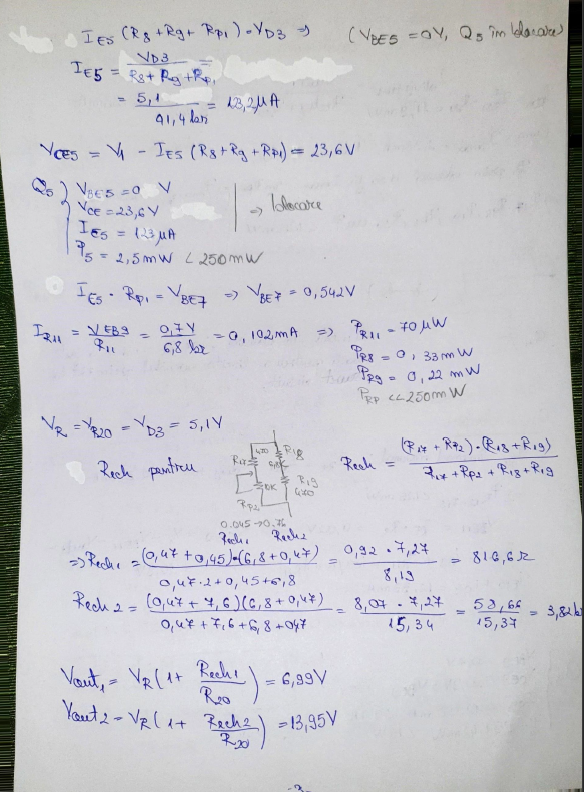 I_E5 (R8 + R9 + Rp1) = V_D3 => (V_BE5 = 0V, Q5 în blocare)
I_E5 = V_D3 / (R8 + R9 + Rp1) =
= 5,1 / 41,4 kΩ = 123,2 μA
V_CE5 = V1 - I_E5 (R8 + R9 + Rp1) = 23,6V
Q5 { V_BE5 = 0 V
V_CE = 23,6V => blocare
I_E5 = 123 μA
P5 = 2,5 mW < 250 mW
I_E5 · Rp1 = V_BE7 => V_BE7 = 0,542V
I_R11 = V_EB9 / R11 = 0,7V / 6,8 kΩ = 0,102 mA => P_R11 = 70 μW
P_R8 = 0,33 mW
P_R9 = 0,22 mW
P_RP << 250 mW
V_R = V_R20 = V_D3 = 5,1V
Rech pentru
R17 470 R18 6,8k
10K R19 470
Rp2
0.045 → 0.76
Rech1 Rech2
Rech = (R17 + Rp2) · (R18 + R19) / (R17 + Rp2 + R18 + R19)
=> Rech1 = (0,47 + 0,45) · (6,8 + 0,47) / (0,47 · 2 + 0,45 + 6,8) = 0,92 · 7,27 / 8,19 = 816,6 Ω
Rech2 = (0,47 + 7,6)(6,8 + 0,47) / (0,47 + 7,6 + 6,8 + 0,47) = 8,07 · 7,27 / 15,34 = 58,66 / 15,37 = 3,82 k
Vout1 = V_R (1 + Rech1 / R20) = 6,99V
Vout2 = V_R (1 + Rech2 / R20) = 13,95V